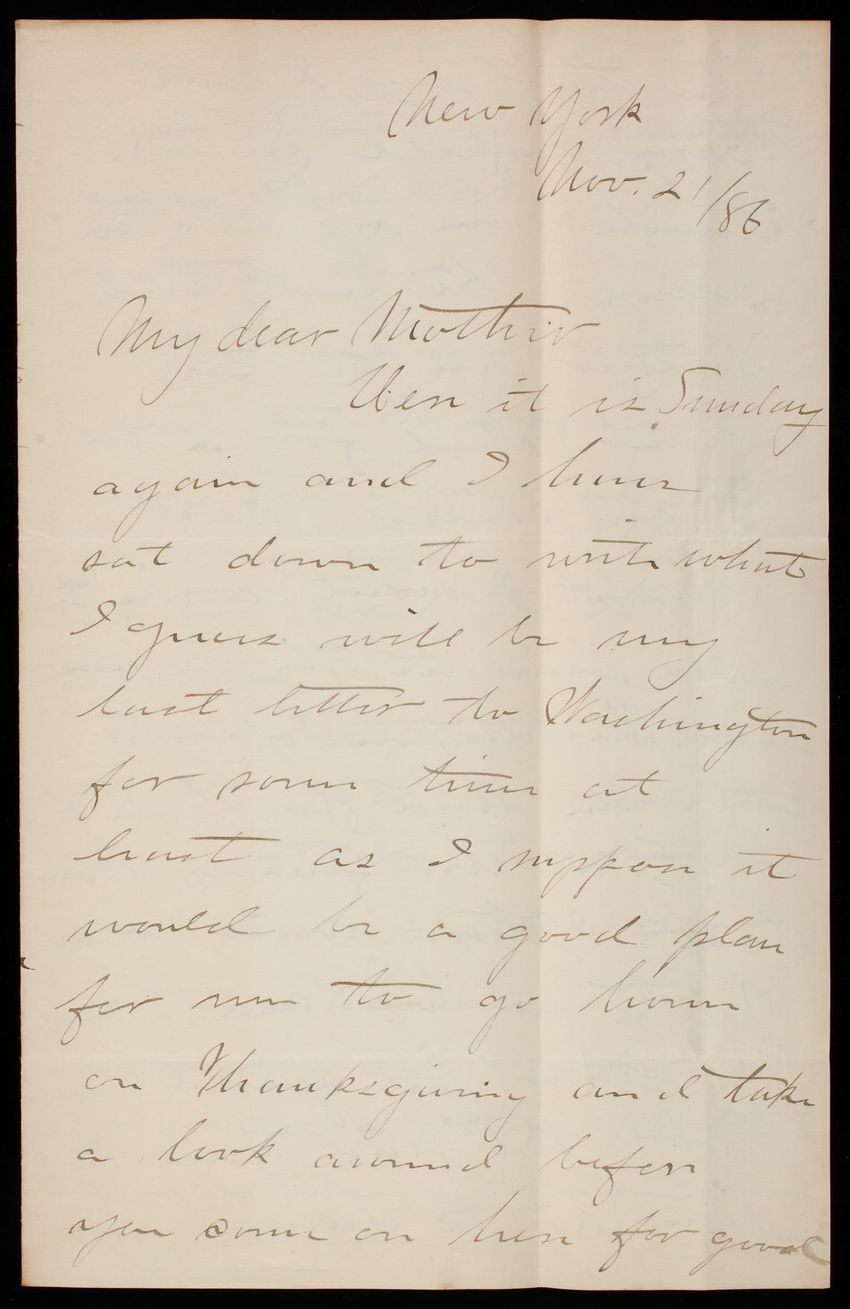 New York
Nov. 21/86
My dear Mother
Here it is Sunday
again and I have
sat down to write what
I guess will be my
last letter to Washington
for some time at
least as I suppose it
would be a good plan
for me to go home
on Thanksgiving and take
a look around before
you come on here for good